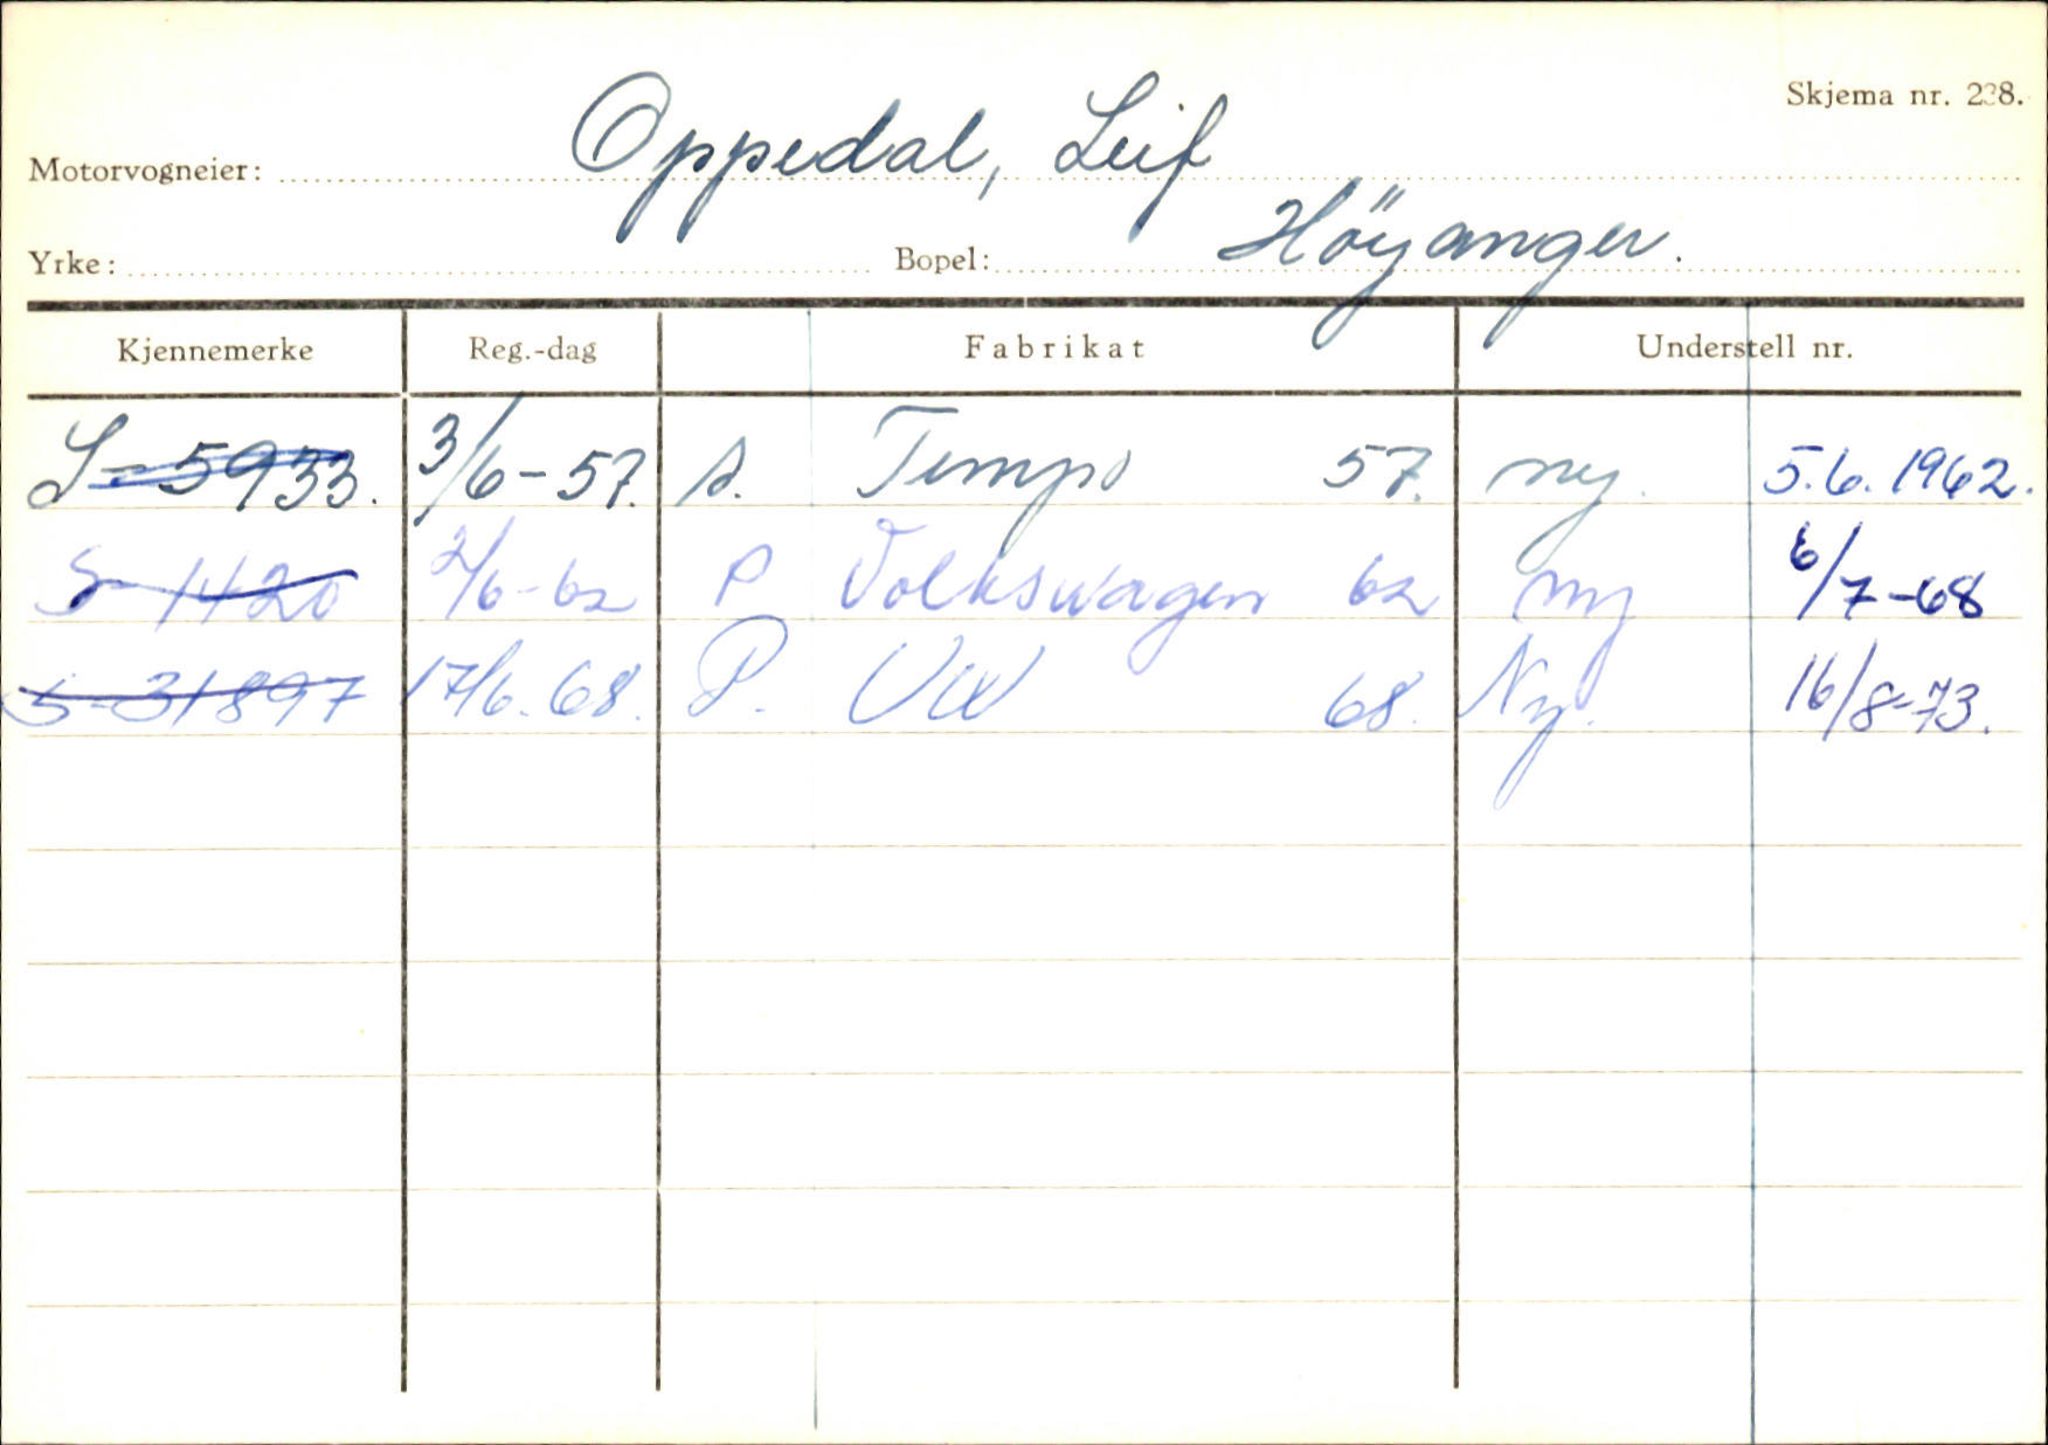 Skjema nr. 228.
Motorvogneier: Oppedal, Leif
Yrke: Bopel: Höyanger.
Kjennemerke Reg.-dag Fabrikat Understell nr.
S-5933. 3/6-57. s. Tempo 57. ny. 5.6.1962.
S-1420 2/6-62 P Volkswagen 62 ny 6/7-68
S-31897 17/6-68. P. VW 68. Ny. 16/8-73.